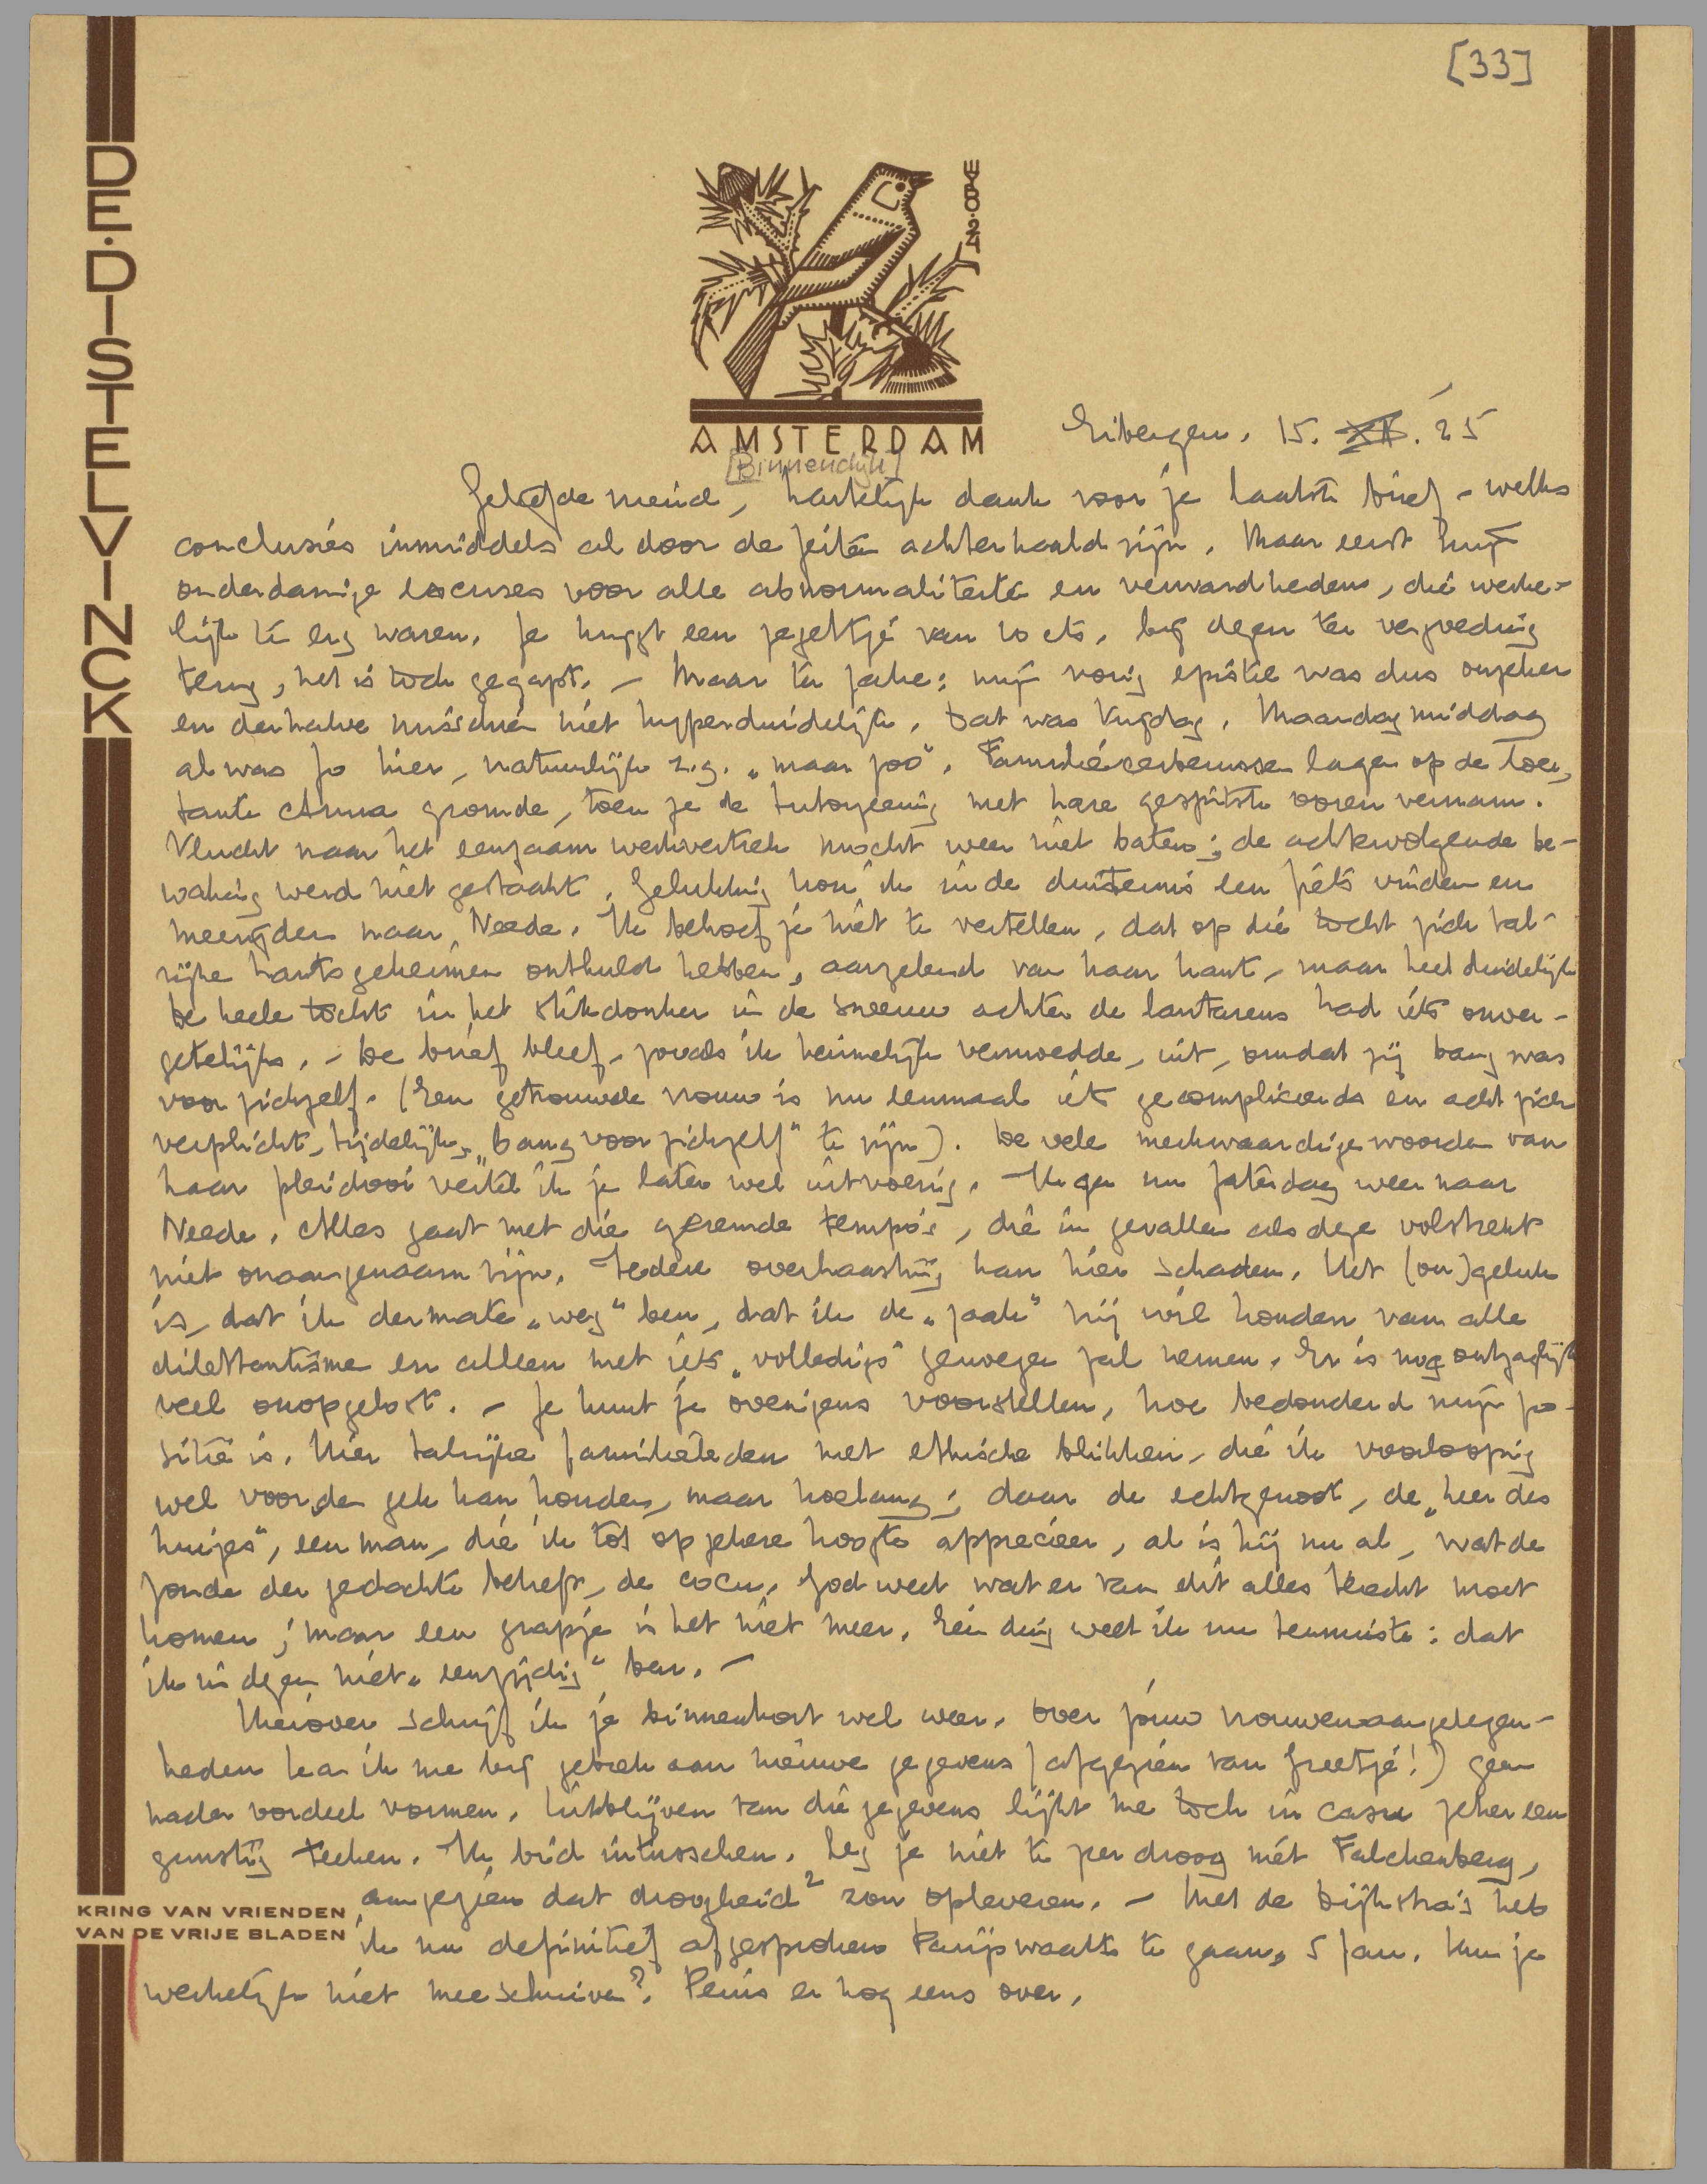 [33]
DE·DISTELVINCK
WYBO·24
AMSTERDAM
Eibergen, 15. XII. '25
[Binnendijk]
Geliefde vriend, hartelijk dank voor je laatste brief - welks
conclusies inmiddels al door de feiten achterhaald zijn. Maar eerst mijn
onderdanige excuses voor alle abnormaliteiten en verwardheden, die werke-
lijk te erg waren. Je krijgt een zegeltje van 10 cts. bij dezen ter vergoeding
terug, het is toch gegapt. - Maar ter zake: mijn vorig epistel was dus onzeker
en derhalve misschien niet hyperduidelijk. Dat was Vrijdag. Maandagmiddag
al was Jo hier, natuurlijk z.g. „maar zoo". Familiecerberussen lagen op de loer,
tante Anna gromde, toen ze de tutoyeering met hare gespitste ooren vernam.
Vlucht naar het eenzaam werkvertrek mocht weer niet baten; de achtervolgende be-
waking werd niet gestaakt. Gelukkig kon ik in de duisternis een fiets vinden en
meerijden naar Neede. Ik behoef je niet te vertellen, dat op die tocht zich tal-
rijke hartsgeheimen onthuld hebben, aarzelend van haar kant, maar heel duidelijk
De heele tocht in het stikdonker in de sneeuw achter de lantarens had iets onver-
getelijks. - De brief bleef, zooals ik heimelijk vermoedde, uit, omdat zij bang was
voor zichzelf. (Een getrouwde vrouw is nu eenmaal iets gecompliceerds en acht zich
verplicht, tijdelijk, „bang voor zichzelf" te zijn). De vele merkwaardige woorden van
haar pleidooi vertel ik je later wel uitvoerig. Ik ga nu Zaterdag weer naar
Neede. Alles gaat met die geremde tempo's, die in gevallen als deze volstrekt
niet onaangenaam zijn. Iedere overhaasting kan hier schaden. Het (on)geluk
is, dat ik dermate „weg" ben, dat ik de „zaak" vrij wil houden van alle
dilettantisme en alleen met iets „volledigs" genoegen zal nemen. Er is nog ontzaglijk
veel onopgelost. - Je kunt je overigens voorstellen, hoe bedonderd mijn po-
sitie is. Hier talrijke familieleden met ethische blikken, die ik voorloopig
wel voor den gek kan houden, maar hoelang; daar de echtgenoot, de „heer des
huizes", een man, die ik tot op zekere hoogte apprecieer, al is hij nu al, wat de
zonde der gedachte betreft, de cocu. God weet wat er van dit alles terecht moet
komen; maar een grapje is het niet meer. Eén ding weet ik nu tenminste: dat
ik in dezen niet „eenzijdig" ben. -
Hierover schrijf ik je binnenkort wel weer. Over jouw vrouwenaangelegen-
heden kan ik me bij gebrek aan nieuwe gegevens (afgezien van Greetje!) geen
nader oordeel vormen. Uitblijven van die gegevens lijkt me toch in casu zeker een
gunstig teeken. Ik bid intusschen. Leg je niet te zeer droog mét Falchenberg,
KRING VAN VRIENDEN
VAN DE VRIJE BLADEN
aangezien dat droogheid² zou opleveren. - Met de Dijkstra's heb
ik nu definitief afgesproken Parijswaarts te gaan, 5 Jan. Kun je
werkelijk niet meeschuiven? Peins er nog eens over.